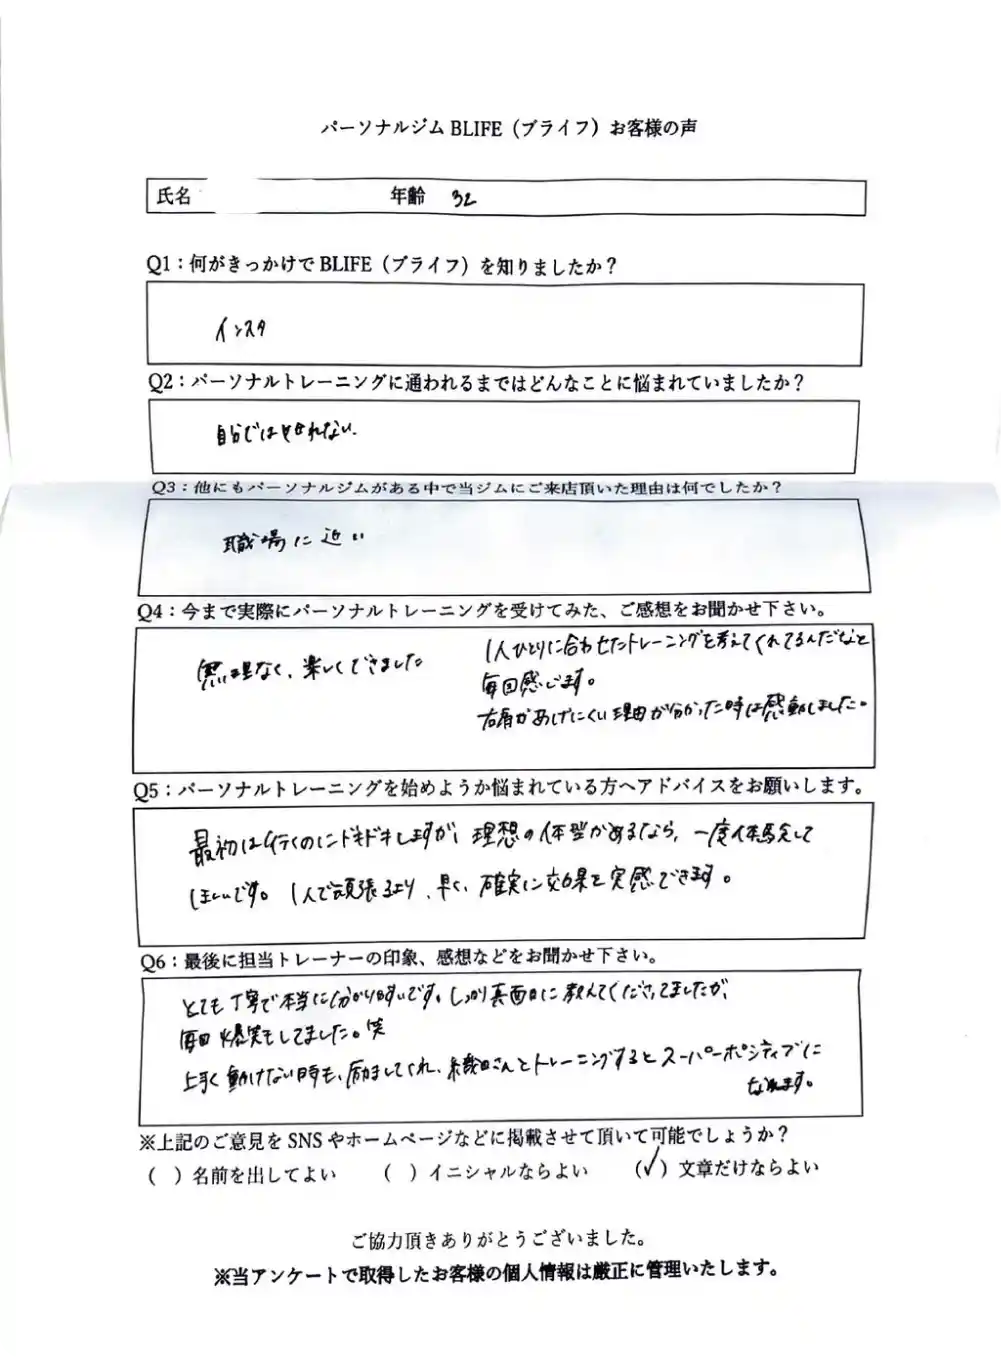 パーソナルジム BLIFE（ブライフ）お客様の声
氏名　年齢　32
Q1：何がきっかけで BLIFE（ブライフ）を知りましたか？
インスタ
Q2：パーソナルトレーニングに通われるまではどんなことに悩まれていましたか？
自分ではやせれない.
Q3：他にもパーソナルジムがある中で当ジムにご来店頂いた理由は何でしたか？
職場に近い
Q4：今まで実際にパーソナルトレーニングを受けてみた、ご感想をお聞かせ下さい。
無理なく、楽しくできました
1人ひとりに合わせたトレーニングを考えてくれてるんだなと
毎回感じます。
右肩があげにくい理由が分かった時は感動しました。
Q5：パーソナルトレーニングを始めようか悩まれている方へアドバイスをお願いします。
最初は行くのにドキドキしますが、理想の体型があるなら、一度体験して
ほしいです。1人で頑張るより、早く、確実に効果を実感できます。
Q6：最後に担当トレーナーの印象、感想などをお聞かせ下さい。
とても丁寧で本当に分かりやすいです。しっかり真面目に教えてくださってましたが、
毎回爆笑もしてました。笑
上手く動けない時も、励ましてくれ、織田さんとトレーニングするとスーパーポジティブに
なれます。
※上記のご意見を SNS やホームページなどに掲載させて頂いて可能でしょうか？
（　）名前を出してよい　（　）イニシャルならよい　（✓）文章だけならよい
ご協力頂きありがとうございました。
※当アンケートで取得したお客様の個人情報は厳正に管理いたします。